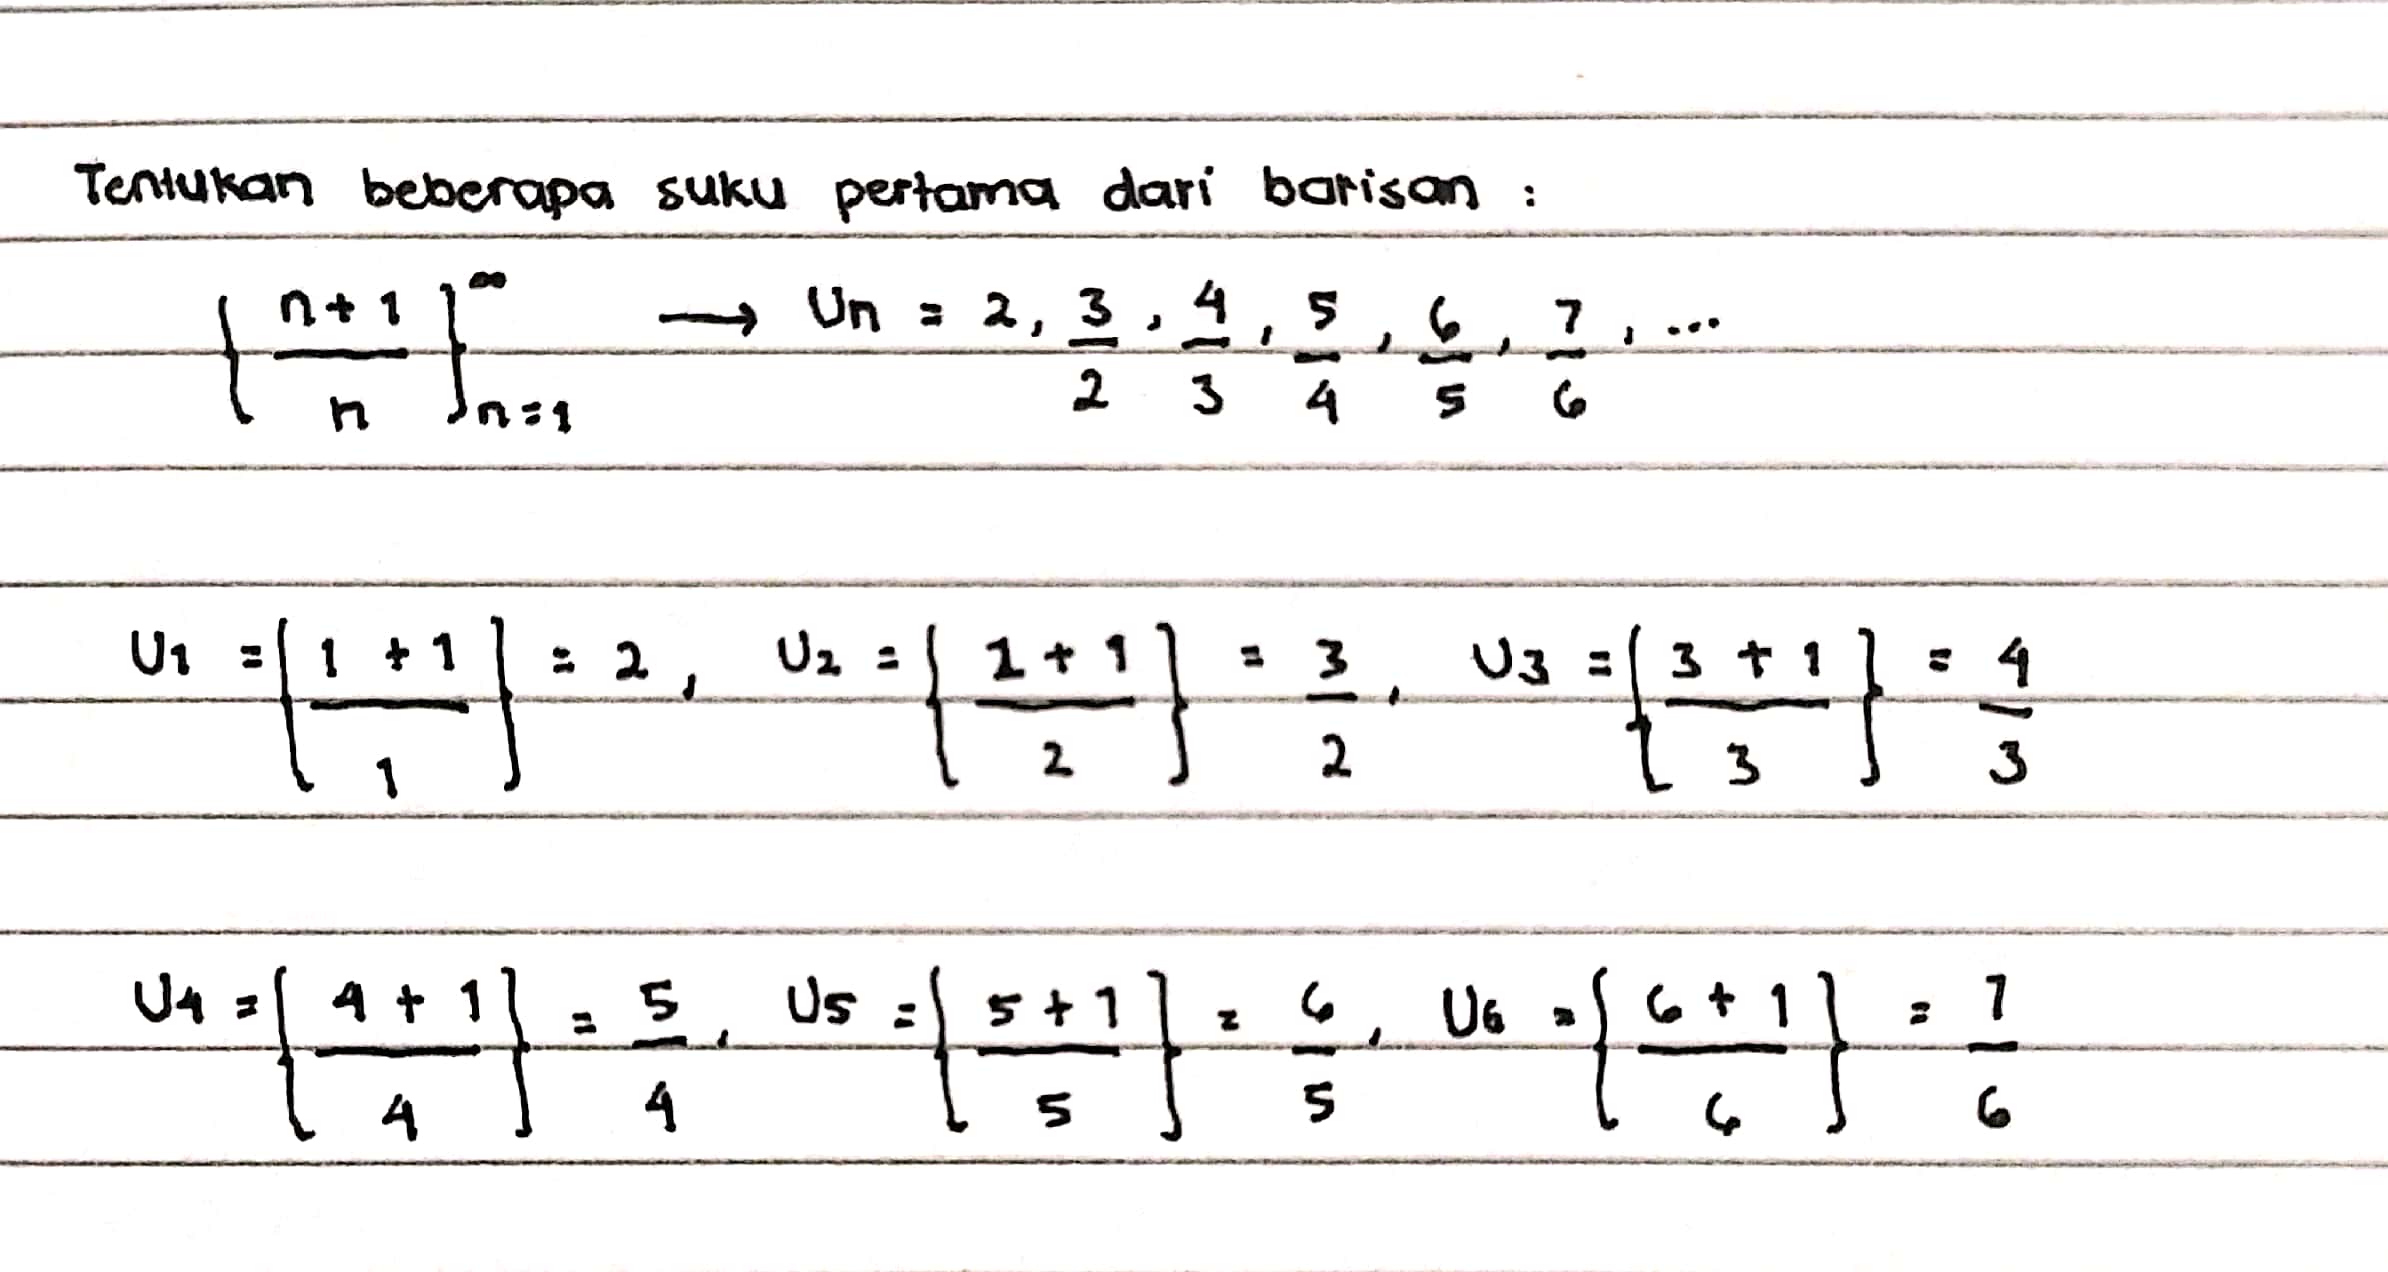 Tentukan beberapa suku pertama dari barisan :
{ n+1 / n }^∞ n=1 → Un = 2, 3/2, 4/3, 5/4, 6/5, 7/6, ...
U1 = { 1 + 1 / 1 } = 2, U2 = { 2+1 / 2 } = 3/2, U3 = { 3 + 1 / 3 } = 4/3
U4 = { 4 + 1 / 4 } = 5/4, U5 = { 5+1 / 5 } = 6/5, U6 = { 6+1 / 6 } = 7/6